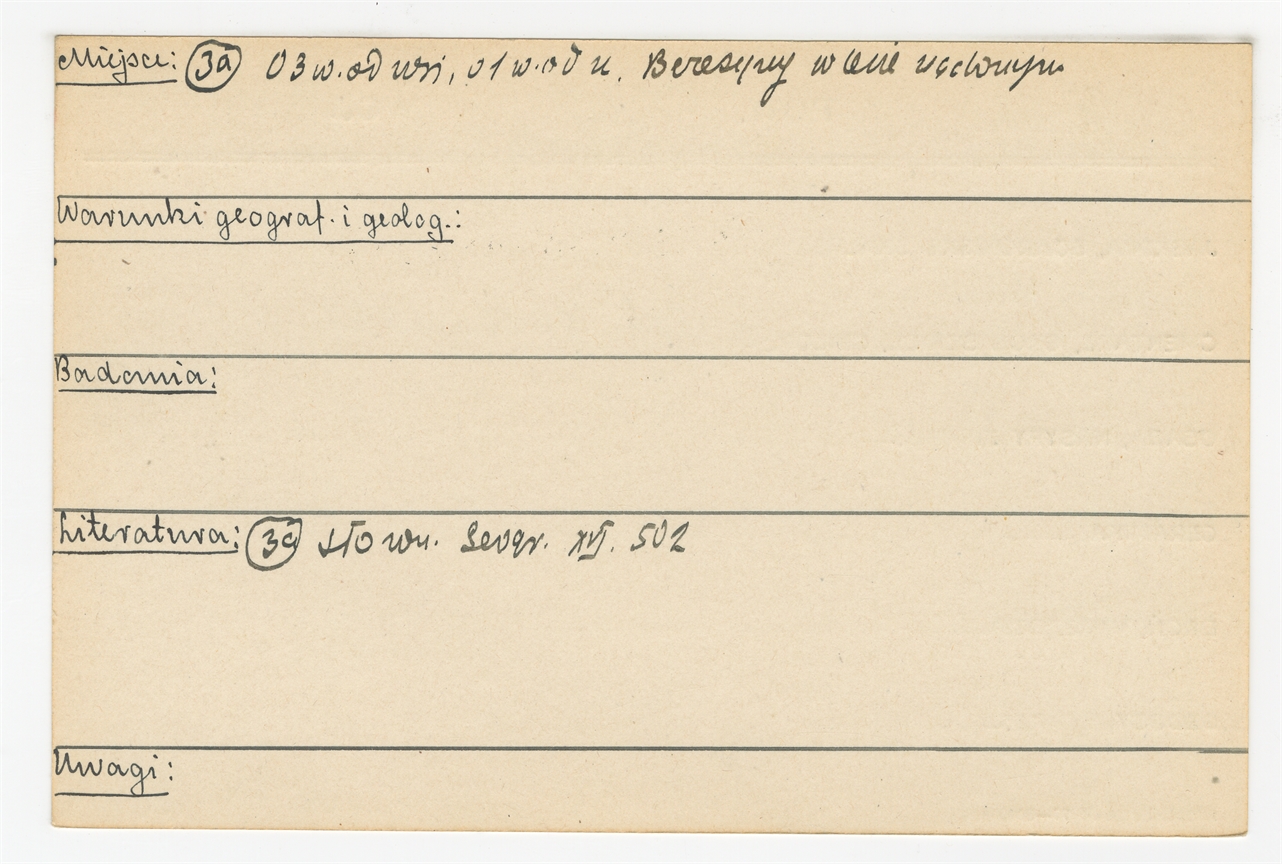 Miejsce: 3a O 3 w. od wsi, o 1 w. od u. Berezyny w lesie rządowym
Warunki geograf. i geolog.:
Badania:
Literatura: 3a Słown. Geogr. XVI. 502
Uwagi: